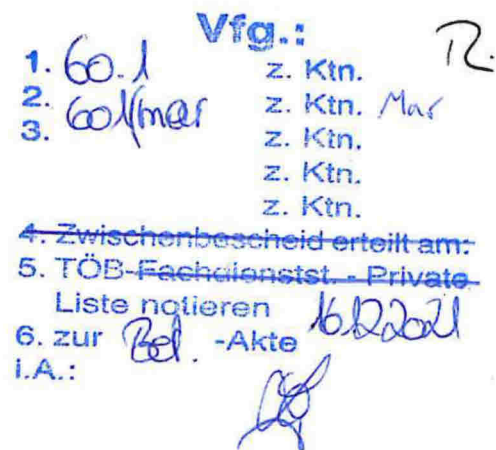 Vfg.: R.
1. 60.1 z. Ktn.
2. 601/mar z. Ktn. Mar
3. z. Ktn.
z. Ktn.
z. Ktn.
4. Zwischenbescheid erteilt am:
5. TÖB-Fachdienstst. - Private
Liste notieren 16.12.2021
6. zur Bet. -Akte
i.A.: